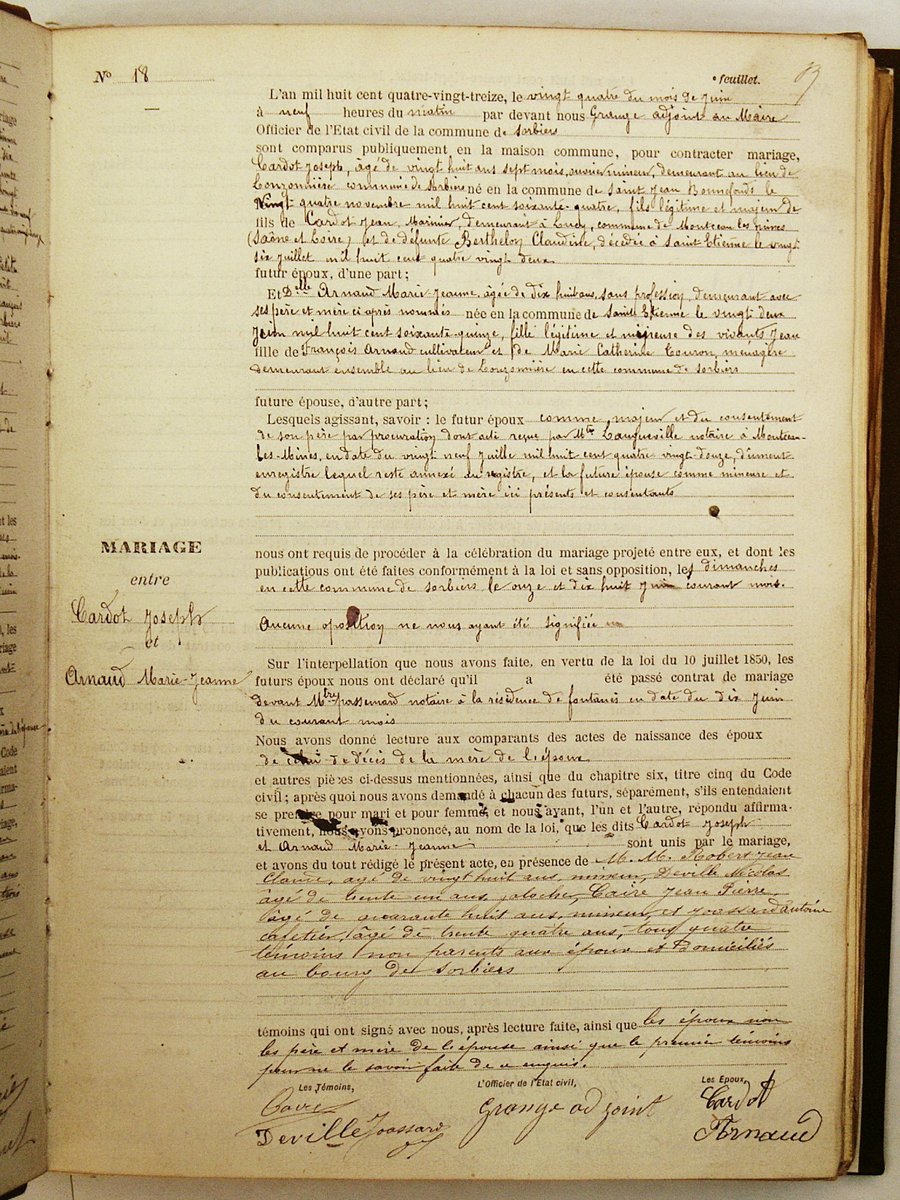 N° 18
° feuillet.
L'an mil huit cent quatre-vingt-treize, le vingt quatre du mois de Juin
à neuf heures du matin par devant nous Grange adjoint au Maire
Officier de l'Etat civil de la commune de Sorbiers
sont comparus publiquement, en la maison commune, pour contracter mariage,
Cardot Joseph, âgé de vingt huit ans sept mois, ouvrier mineur, demeurant au lieu de
commune de Sorbiers né en la commune de Saint Jean Bonnefonds le
Vingt quatre novembre mil huit cent soixante-quatre, fils légitime et majeur de
fils de Cardot Jean, Marinier, demeurant à Lucy, commune de Montceau les mines
(Saône et Loire) et de défunte Berthelon Claudine, décédée à Saint Etienne le vingt
six Juillet mil huit cent quatre vingt deux
futur époux, d'une part;
Et Dlle Arnaud Marie-Jeanne, âgée de dix huit ans, sans profession, demeurant avec
ses père et mère ci après nommés née en la commune de Saint Etienne le vingt deux
Juin mil huit cent soixante-quinze, fille légitime et mineure des vivants Jean
fille de François Arnaud cultivateur et de Marie Catherine Couron, ménagère
demeurant ensemble au lieu de en cette commune de Sorbiers
future épouse, d'autre part;
Lesquels agissant, savoir : le futur époux comme majeur et du consentement
de son père par procuration dont acte reçue par Mtre Langueville notaire à Montceau-
les-Mines, en date du vingt neuf Juille mil huit cent quatre vingt douze, dument
enregistré lequel reste annexé au registre, et la future épouse comme mineure et
du consentement de ses père et mère ici présents et consentants
MARIAGE
entre
Cardot Joseph
et
Arnaud Marie-Jeanne
nous ont requis de procéder à la célébration du mariage projeté entre eux, et dont les
publications ont été faites conformément à la loi et sans opposition, les dimanches
en cette commune de sorbiers le onze et dix huit Juin courant mois.
Aucune oposition ne nous ayant été signifiée
Sur l'interpellation que nous avons faite, en vertu de la loi du 10 juillet 1850, les
futurs époux nous ont déclaré qu'il a été passé contrat de mariage
devant Mtre Passemard notaire à la résidence de fontanès en date du dix Juin
du courant mois
Nous avons donné lecture aux comparants des actes de naissance des époux
de celui de décès de la mère de l'époux
et autres pièces ci-dessus mentionnées, ainsi que du chapitre six, titre cinq du Code
civil; après quoi nous avons demandé à chacun des futurs, séparément, s'ils entendaient
se prendre pour mari et pour femme, et nous ayant, l'un et l'autre, répondu affirma-
tivement, nous avons prononcé, au nom de la loi, que les dits Cardot Joseph
et Arnaud Marie-Jeanne sont unis par le mariage,
et avons du tout rédigé le présent acte, en présence de M. M. Robert Jean
Claude, agé de vingt huit ans, mineur, Deville Nicolas
âgé de trente un ans, Caire Jean Pierre
âgé de quarante huit ans, mineur, et Joassard antoine
cafetier, âgé de trente quatre ans, tous quatre
témoins non parents aux époux et domiciliés
au bourg de Sorbiers
témoins qui ont signé avec nous, après lecture faite, ainsi que les époux non
les père et mère de l'épouse ainsi que le premier témoins
pour ne le savoir faite de ce enquis.
Les Témoins,
L'Officier de l'Etat civil,
Les Epoux,
Caire
Grange adjoint
Cardot
Deville Joassard
Arnaud